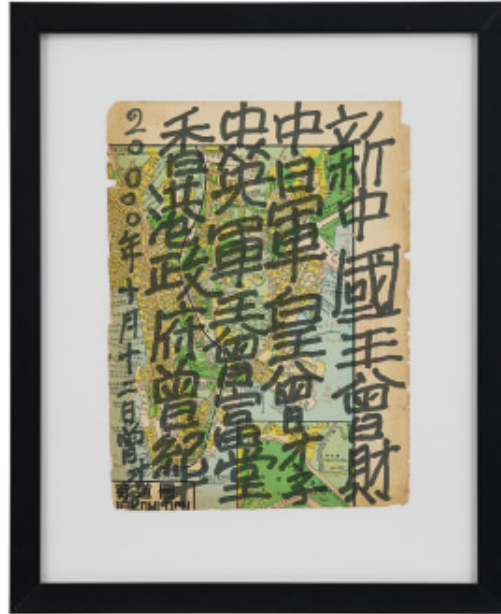 新中國王曾財
中日軍皇曾才子
中英軍王曾富堂
香港政府曾総
2000年十月十三日曾才